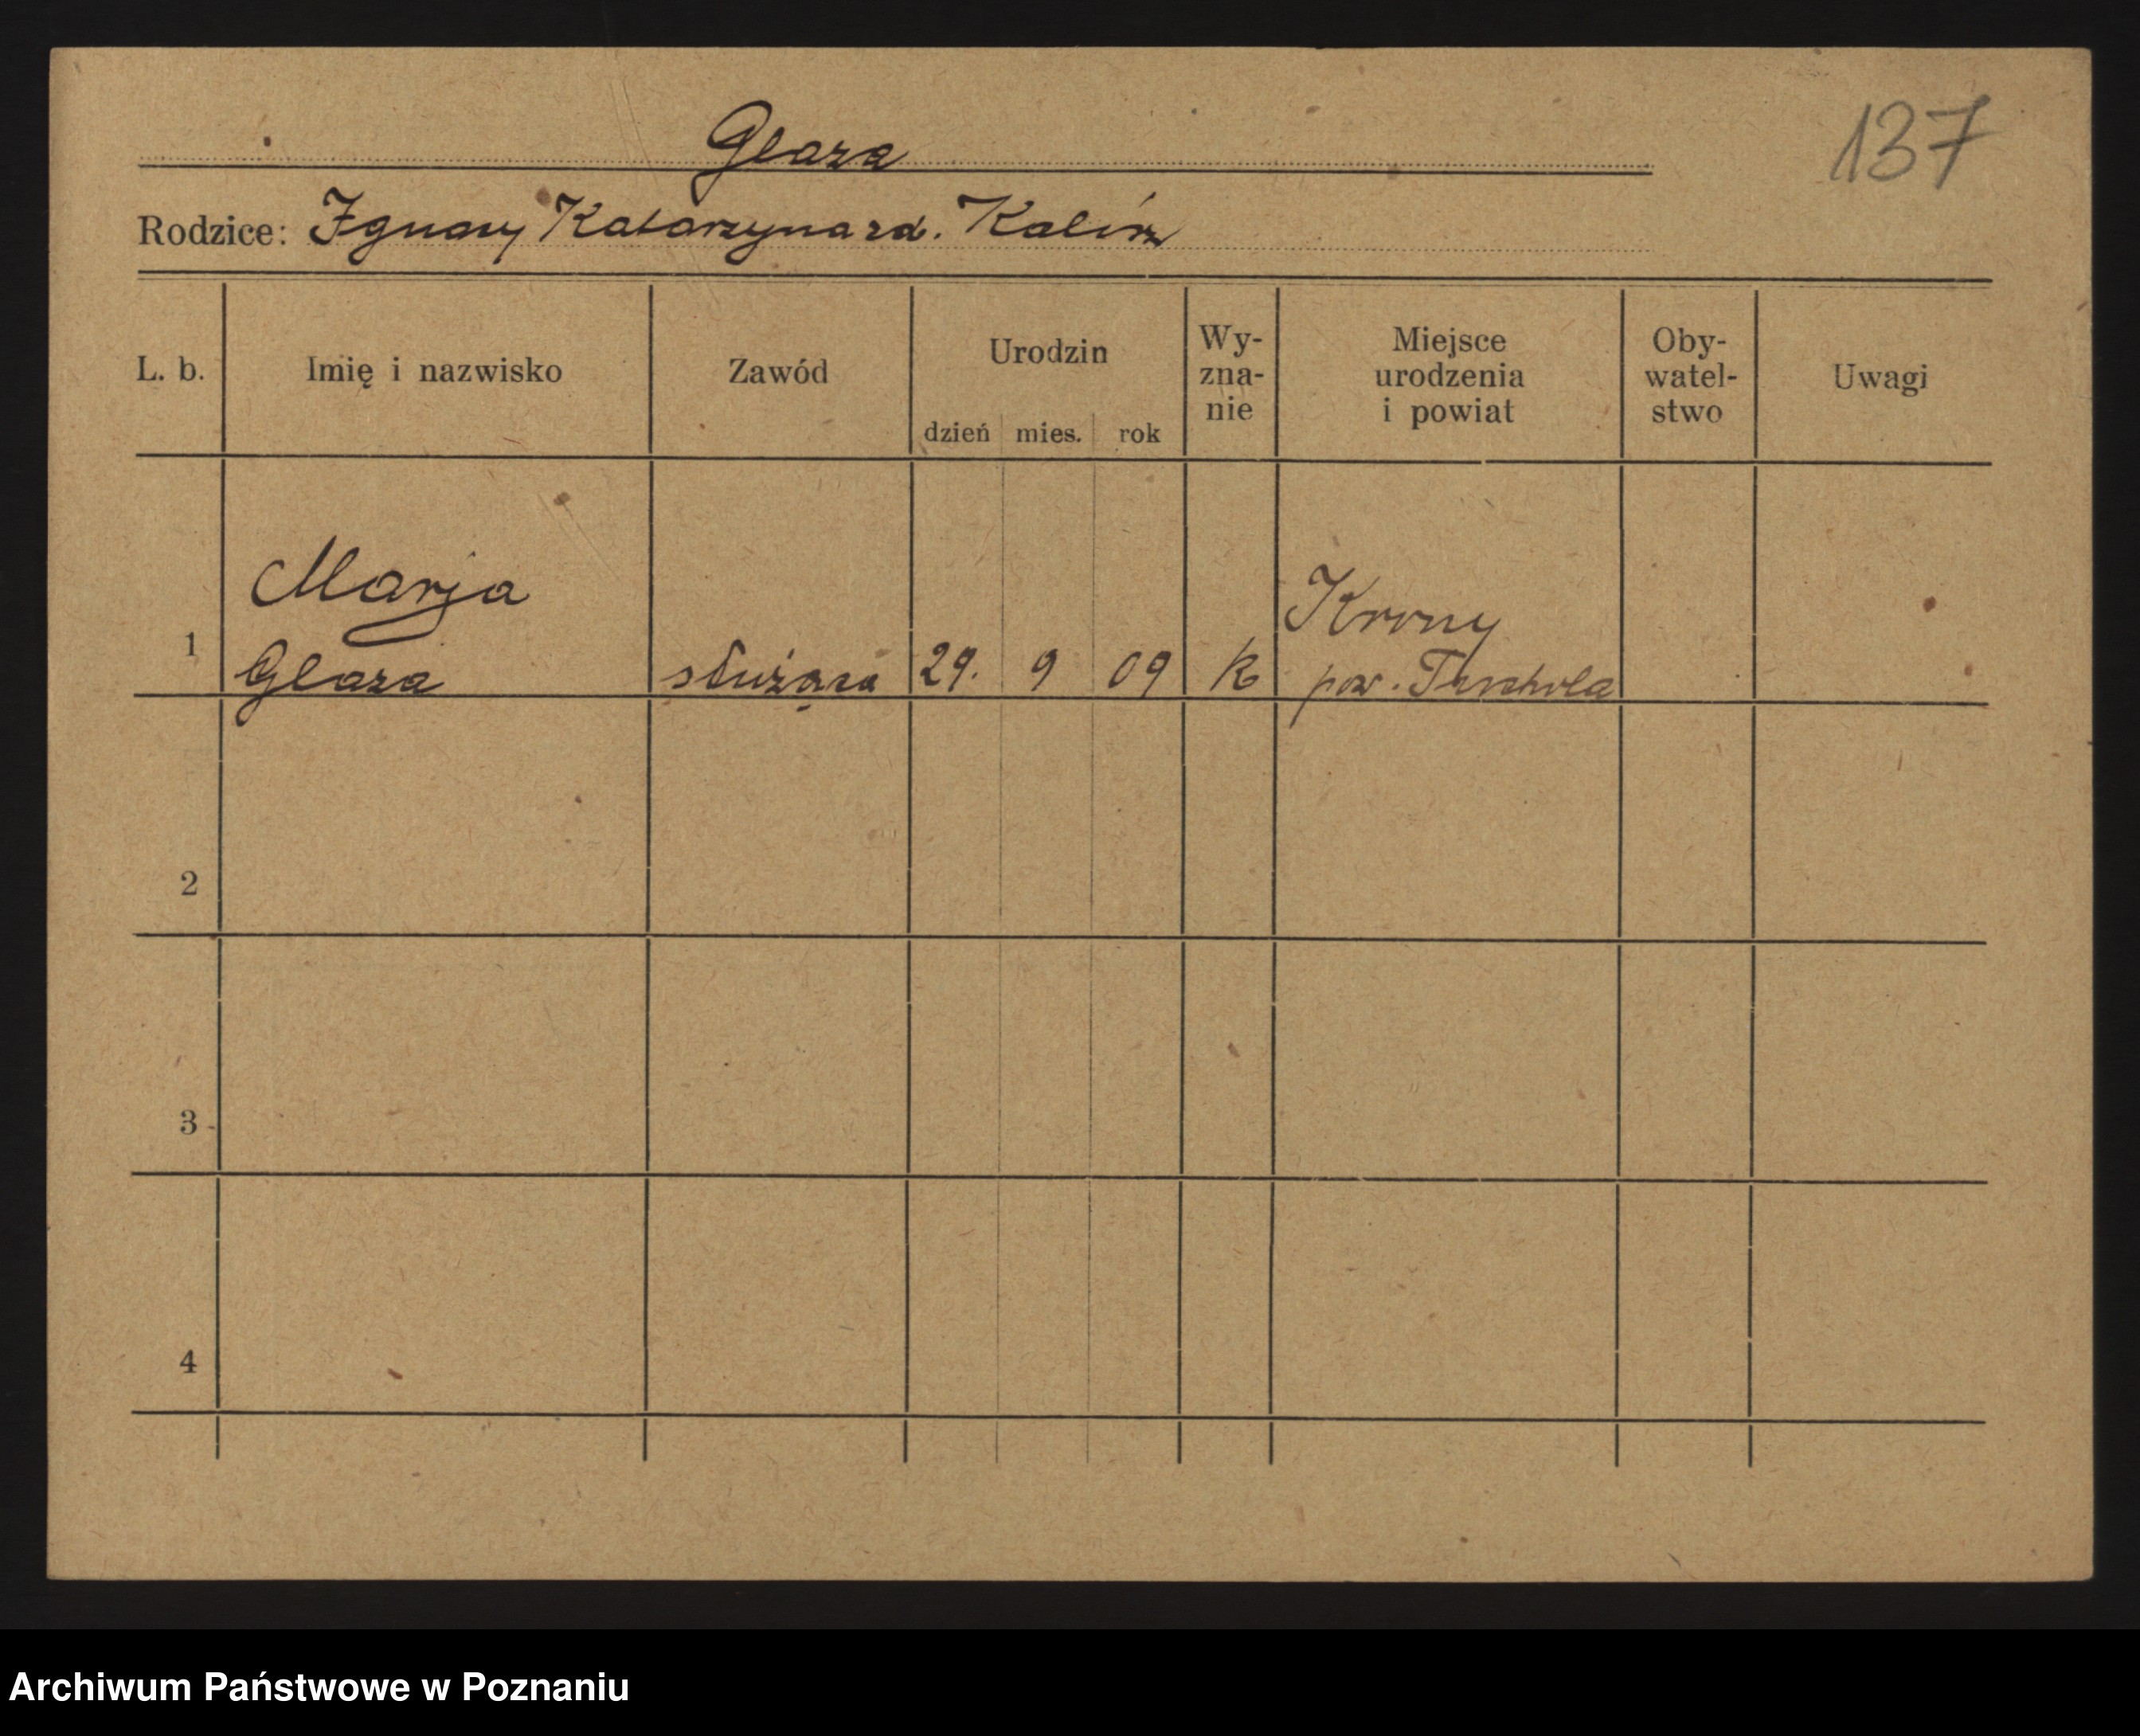 137
Glaza
Rodzice: Ignacy Katarzyna zd. Kalisz
L. b.
Imię i nazwisko
Zawód
Urodzin
dzień mies. rok
Wy-
zna-
nie
Miejsce
urodzenia
i powiat
Oby-
watel-
stwo
Uwagi
Marja
1 Glaza służąca 29. 9 09 k
pow. Tuchola
2
3
4
Archiwum Państwowe w Poznaniu